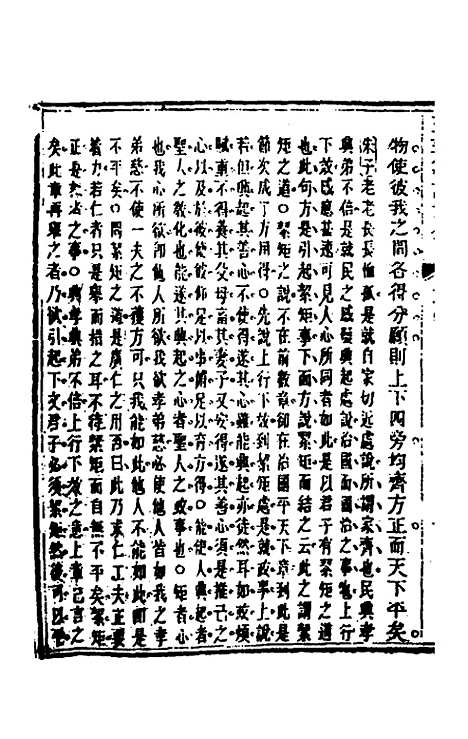 物使彼我之間各得分願則上下四旁均齊方正而天下平矣
朱子老老長長恤孤是就自家切近處說所謂家齊也民興孝
興弟不倍是就民之感發興起處說治國而國治之事也上行
下效感應甚速可見人心所同者如此是以君子有絜矩之道
也此句方是引起絜矩事下面方說絜矩而結之云此之謂絜
矩之道○絜矩之說不在前數章卻在治國平天下章到此是
節次成了方用得○先說上行下效到絜矩處是就政事上說
若但興起其善心不使得遂其心雖能興起亦徒然耳如政煩
賦重不得養其父母畜其妻子又安得遂其善心須是推己之
心以及於彼使彼仰足以事俯足以育方得○能使人興起者
聖人之教化也能遂其興起之心者聖人之政事也○矩者心
也我心所欲卽他人所欲我欲孝弟慈必使他人皆如我之孝
弟慈不使一夫之不獲方可只我能如此他人不能如此則是
不平矣○問絜矩之道是廣仁之用否曰此乃求仁工夫正要
著力若仁者只是舉而措之耳不待絜矩而自無不平矣絜矩
正是恕者之事○興孝興弟不倍上行下效之意上章已言之
矣此章再舉之者乃欲引起下文君子必須絜矩然後可以平